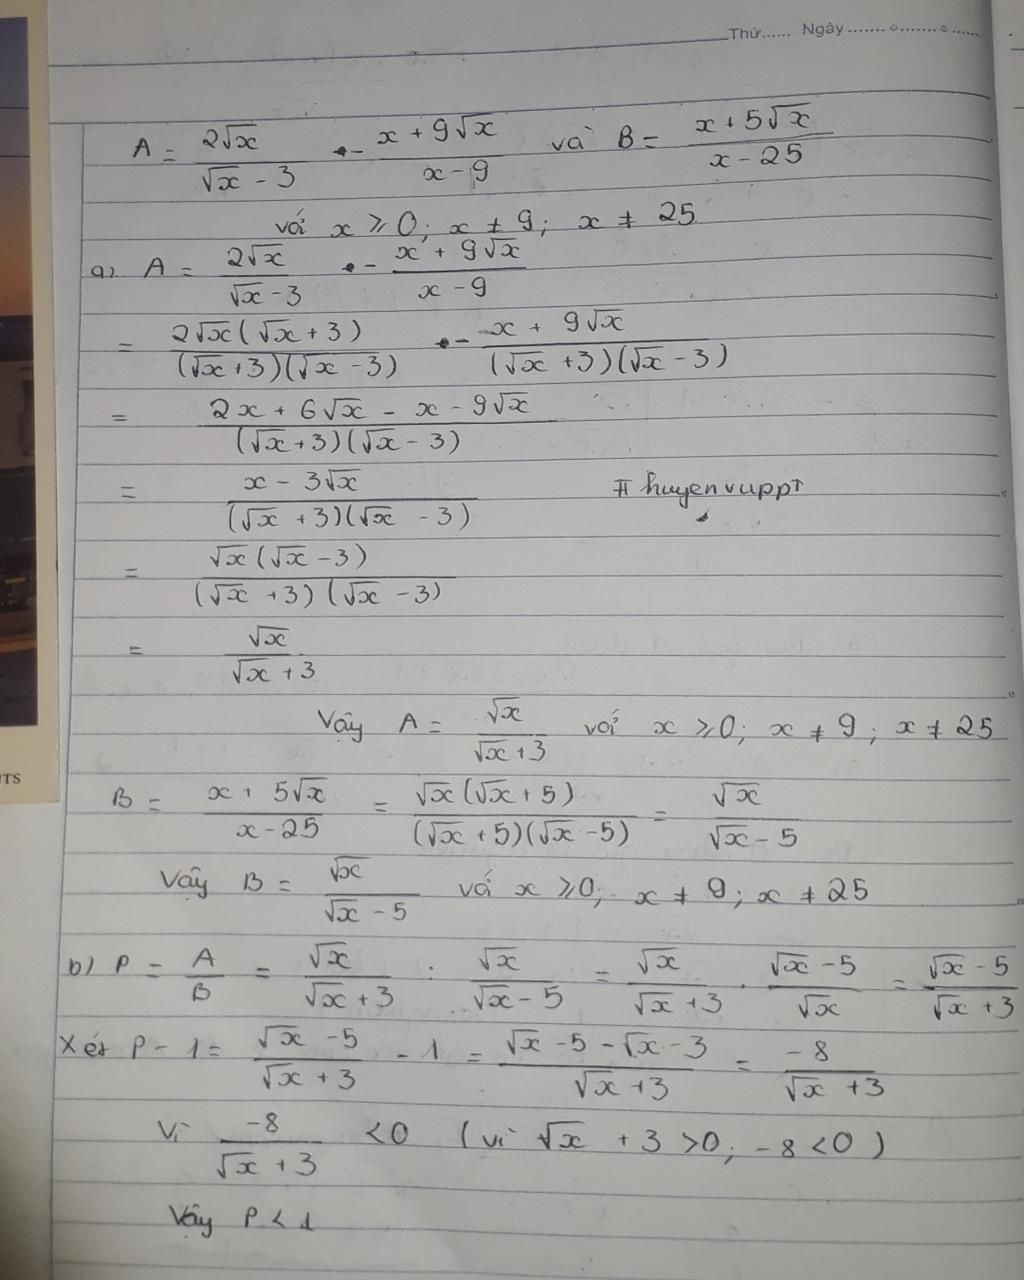 Thứ...... Ngày ....... o ....... o ......
A = 2√x / (√x - 3) - (x + 9√x) / (x - 9) và B = (x + 5√x) / (x - 25)
với x ⩾ 0; x ≠ 9; x ≠ 25
a, A = 2√x / (√x - 3) - (x + 9√x) / (x - 9)
= 2√x(√x + 3) / (√x + 3)(√x - 3) - (x + 9√x) / (√x + 3)(√x - 3)
= (2x + 6√x - x - 9√x) / (√x + 3)(√x - 3)
= (x - 3√x) / (√x + 3)(√x - 3) # huyenvuppt
= √x(√x - 3) / (√x + 3)(√x - 3)
= √x / (√x + 3)
Vậy A = √x / (√x + 3) với x ⩾ 0; x ≠ 9; x ≠ 25
B = (x + 5√x) / (x - 25) = √x(√x + 5) / (√x + 5)(√x - 5) = √x / (√x - 5)
Vậy B = √x / (√x - 5) với x ⩾ 0; x ≠ 9; x ≠ 25
b) P = A / B = √x / (√x + 3) : √x / (√x - 5) = √x / (√x + 3) . (√x - 5) / √x = (√x - 5) / (√x + 3)
Xét P - 1 = (√x - 5) / (√x + 3) - 1 = (√x - 5 - √x - 3) / (√x + 3) = -8 / (√x + 3)
Vì -8 / (√x + 3) < 0 (vì √x + 3 > 0; -8 < 0)
Vậy P < 1